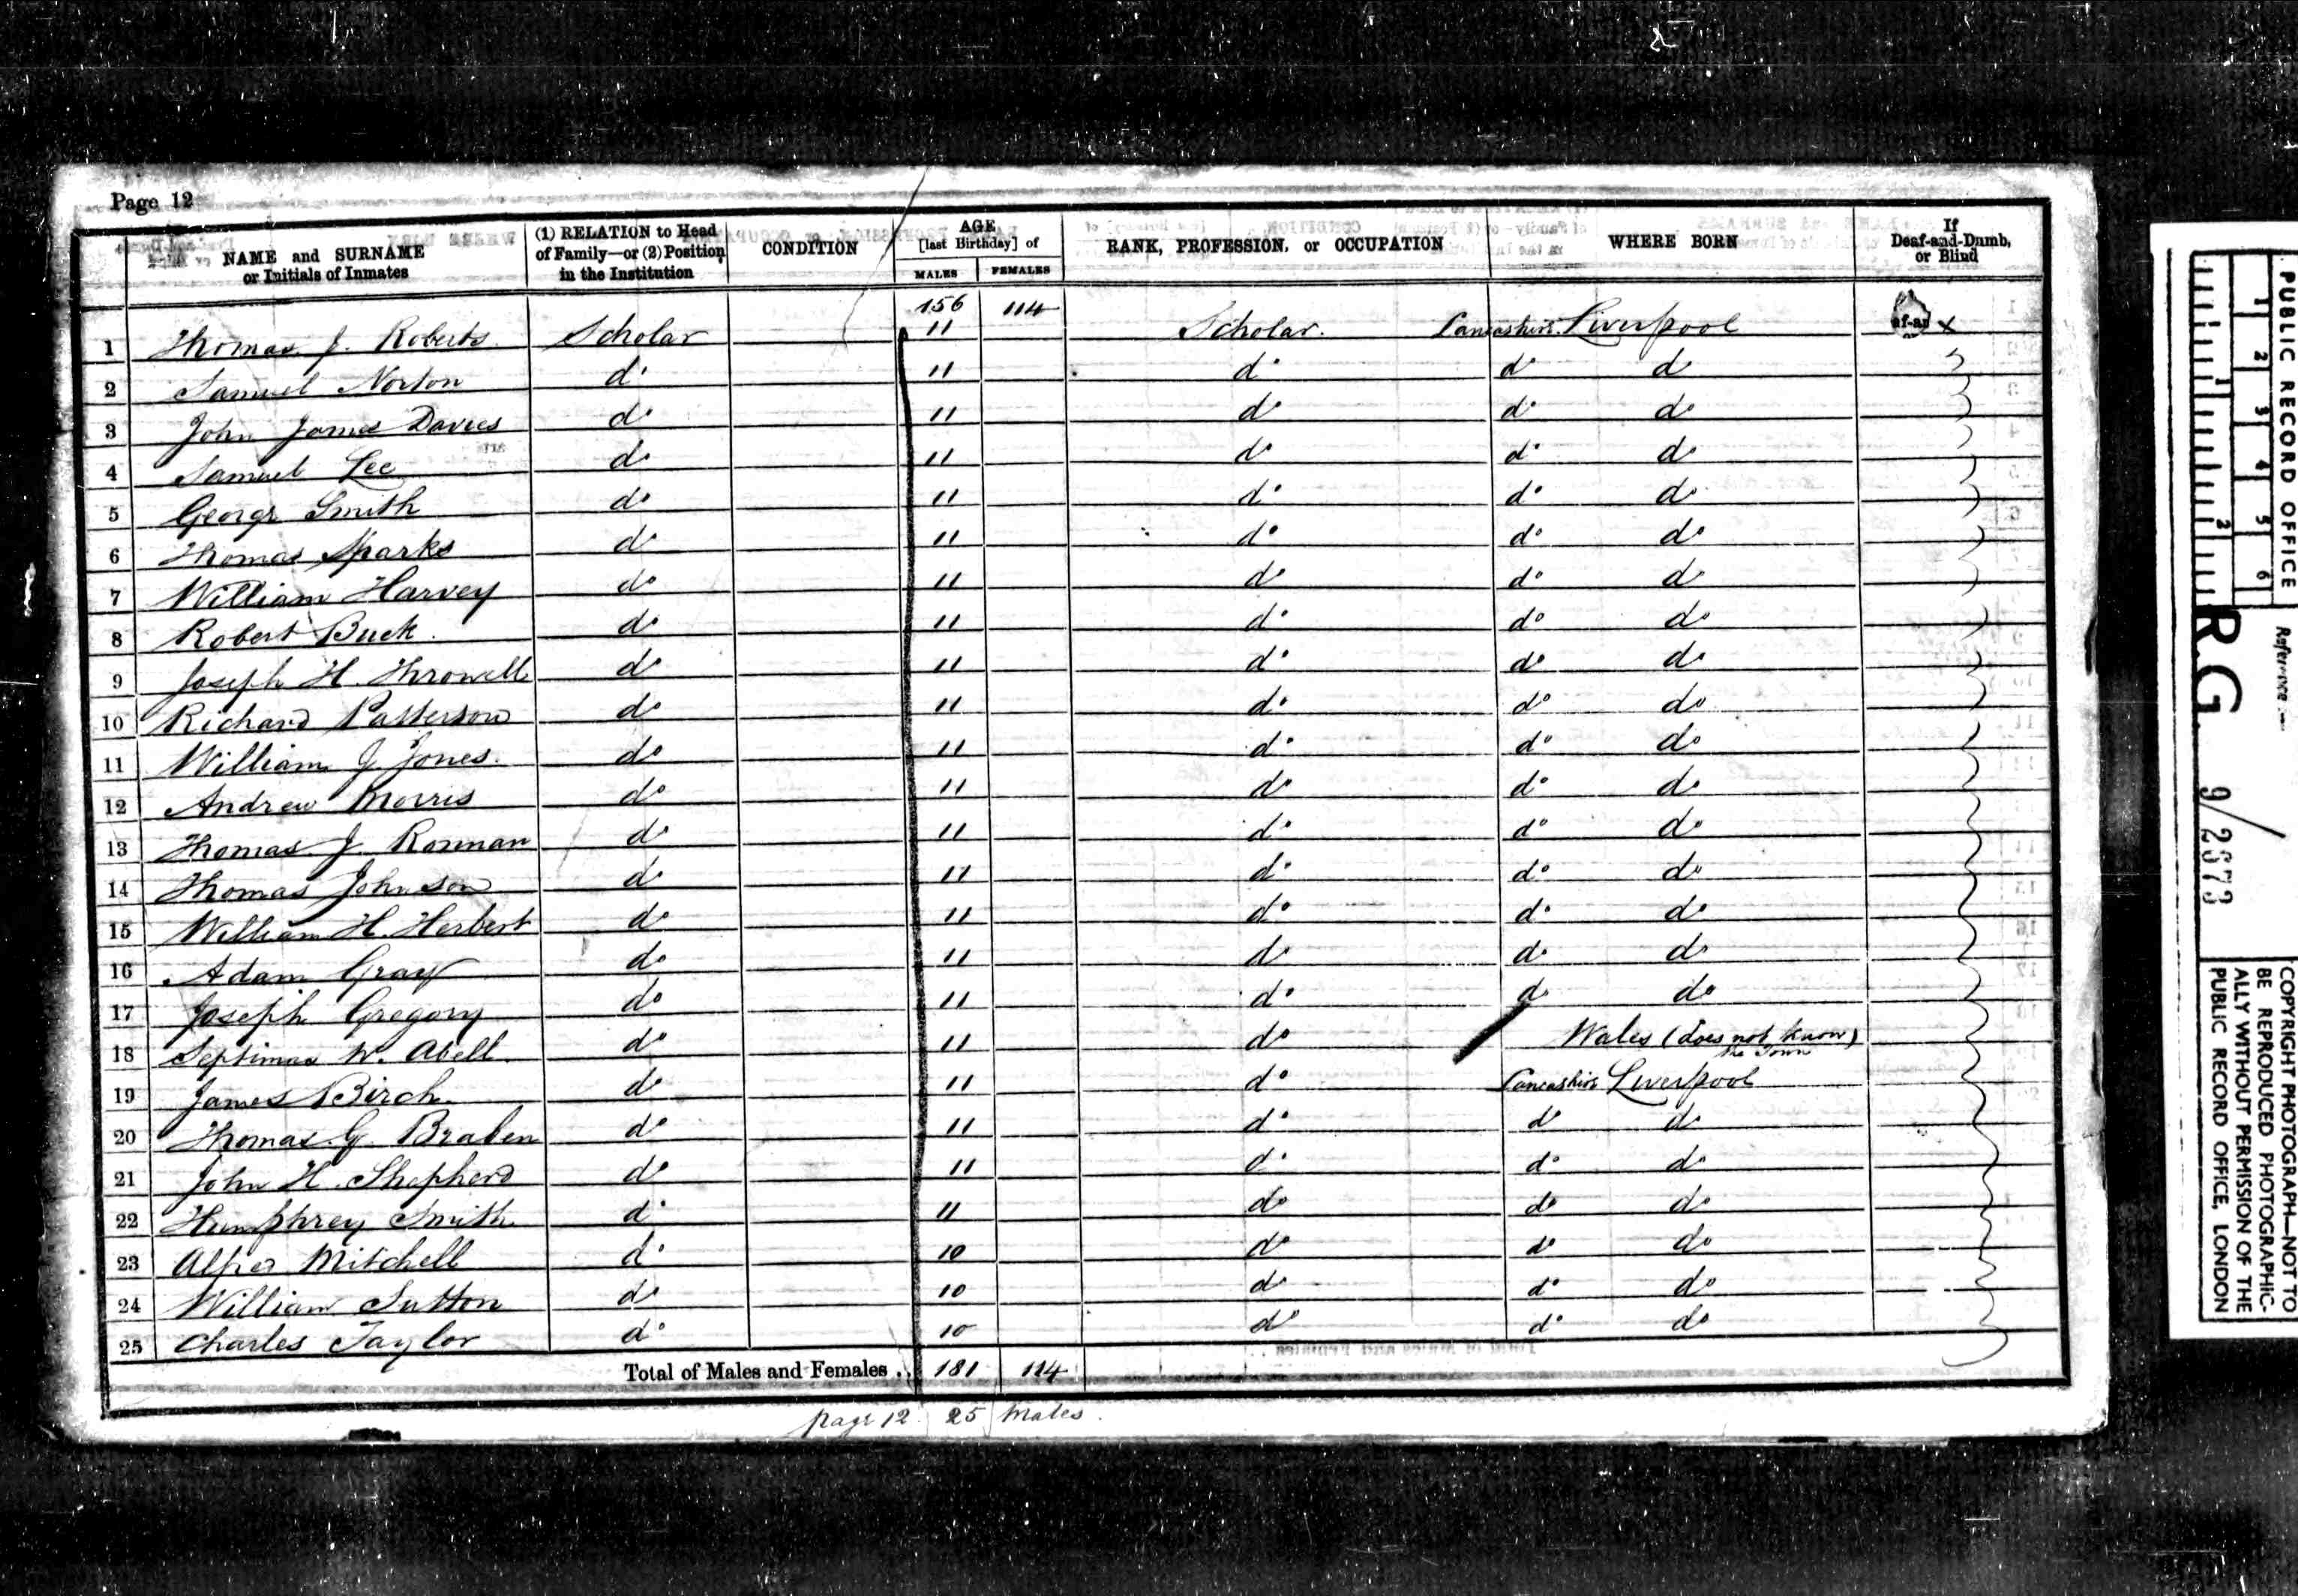 Page 12
NAME and SURNAME or Initials of Inmates
(1) RELATION to Head of Family—or (2) Position in the Institution
CONDITION
AGE [last Birthday] of
MALES FEMALES
RANK, PROFESSION, or OCCUPATION
WHERE BORN
If Deaf-and-Dumb, or Blind
156 114
1 Thomas J. Roberts Scholar 11 Scholar. Lancashire Liverpool x
2 Samuel Norton do 11 do do do
3 John James Davies do 11 do do do
4 Samuel Lee do 11 do do do
5 George Smith do 11 do do do
6 Thomas Sparks do 11 do do do
7 William Harvey do 11 do do do
8 Robert Buck do 11 do do do
9 Joseph H. Throwell do 11 do do do
10 Richard Patterson do 11 do do do
11 William J. Jones do 11 do do do
12 Andrew Morris do 11 do do do
13 Thomas J. do 11 do do do
14 Thomas Johnson do 11 do do do
15 William H. Herbert do 11 do do do
16 Adam Gray do 11 do do do
17 Joseph Gregory do 11 do do do
18 Septimas W. Abell do 11 do Wales (does not know) the Town
19 James Birch do 11 do Lancashire Liverpool
20 Thomas G. Braben do 11 do do do
21 John H. Shepherd do 11 do do do
22 Humphrey Smith do 11 do do do
23 Alfred Mitchell do 10 do do do
24 William Sutton do 10 do do do
25 Charles Taylor do 10 do do do
Total of Males and Females . . 181 114
page 12 25 Males
PUBLIC RECORD OFFICE
1 2 3 4 5 6
1 2
Reference :—
R.G. 9/2673
COPYRIGHT PHOTOGRAPH—NOT TO
BE REPRODUCED PHOTOGRAPHIC-
ALLY WITHOUT PERMISSION OF THE
PUBLIC RECORD OFFICE, LONDON